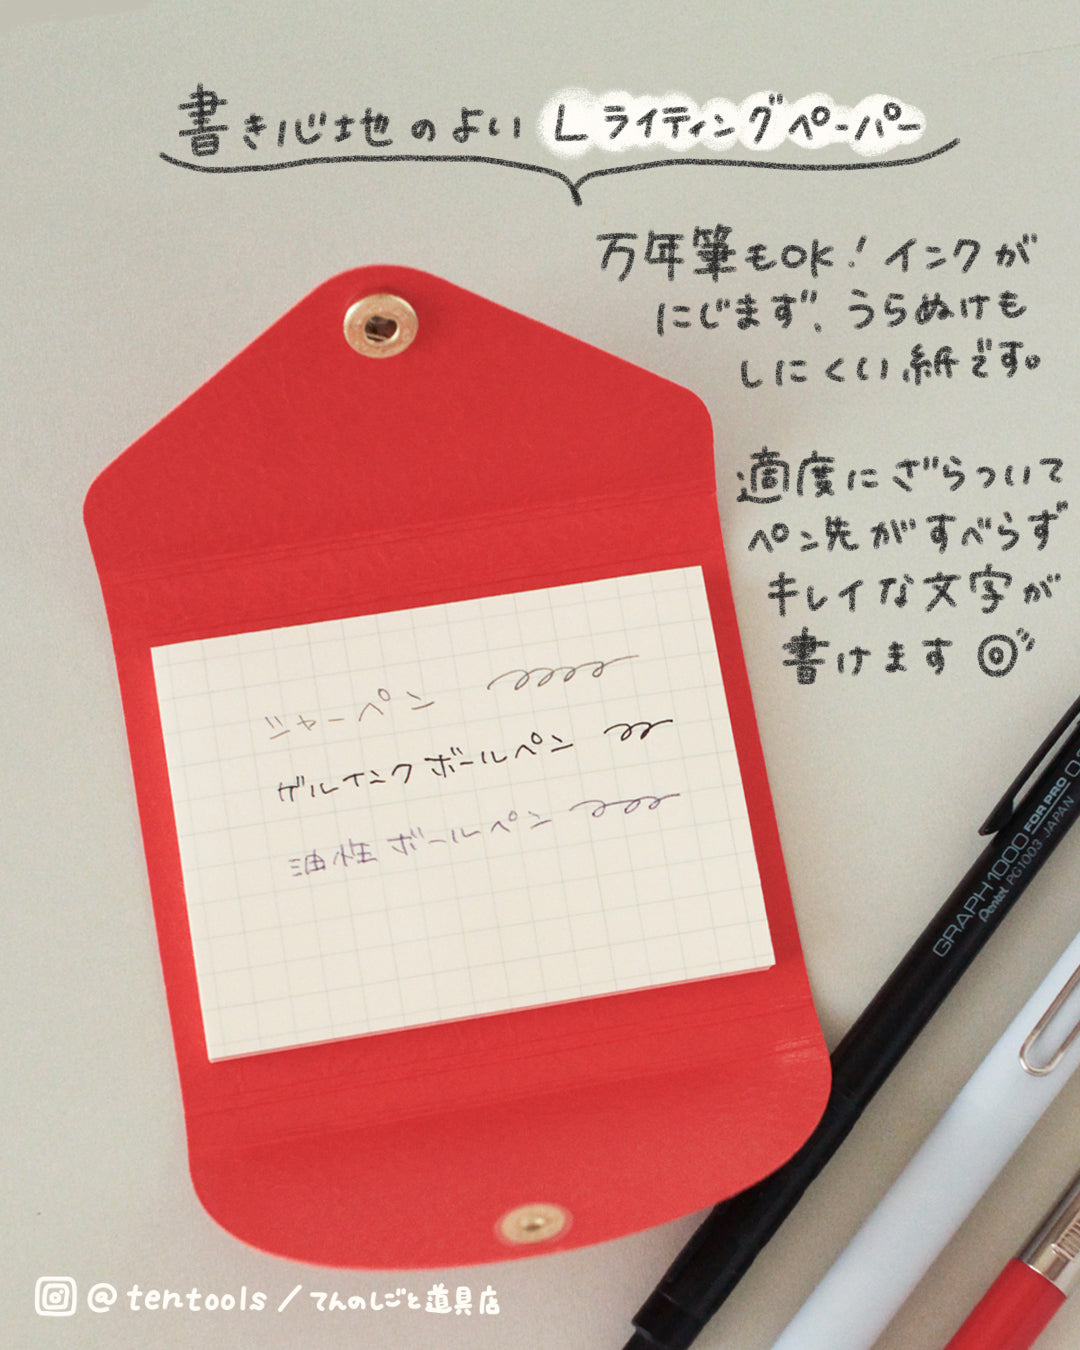 書き心地のよい Lライティングペーパー
万年筆もOK! インクが
にじまず、うらぬけも
しにくい紙です。
適度にざらついて
ペン先がすべらず
キレイな文字が
書けます
シャーペン
ゲルインクボールペン
油性ボールペン
GRAPH1000 FOR PRO 0.
Pentel PG1003 JAPAN
@tentools/てんのしごと道具店